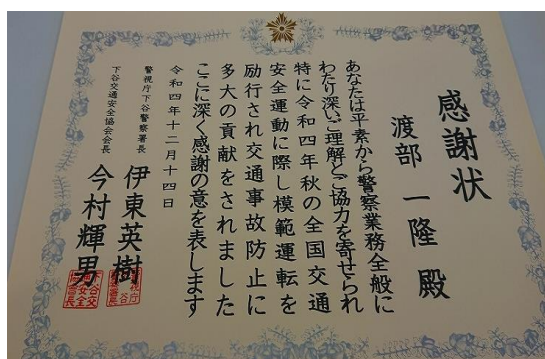 感謝状
渡部一隆殿
あなたは平素から警察業務全般に
わたり深いご理解とご協力を寄せられ
特に令和四年秋の全国交通
安全運動に際し模範運転を
励行され交通事故防止に
多大の貢献をされました
ここに深く感謝の意を表します
令和四年十二月十四日
警視庁下谷警察署長 伊東英樹
下谷交通安全協会会長 今村輝男